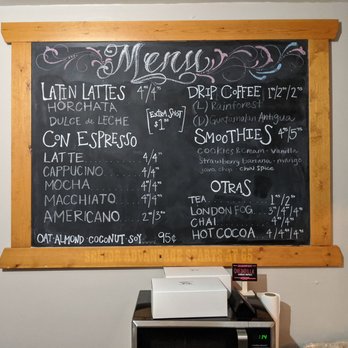 Menu
LATIN LATTES 4"/4"
HORCHATA
DULCE de LECHE
EXTRA SHOT
$1.00
CON ESPRESSO
LATTE 4/4"
CAPPUCINO 4/4"
MOCHA 4"/4"
MACCHIATO 4"/4"
AMERICANO 2"/3"
OAT·ALMOND·COCONUT·SOY....95¢
DRIP COFFEE 1"/2"/2"
(L) Rainforest
(D) Guatemalan Antigua
SMOOTHIES 4"/5"
COOKIES & CREAM · Vanilla
Strawberry banana · mango
java chip · chai spice
OTRAS
TEA 1"/2"
LONDON FOG 3"/4"/4"
CHAI 4"/4"
HOT COCOA 4/4"/4"